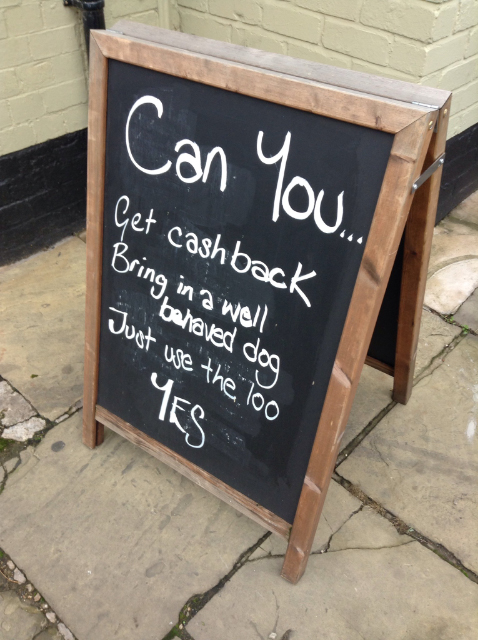 Can You...
Get cashback
Bring in a well
behaved dog
Just use the loo
YES